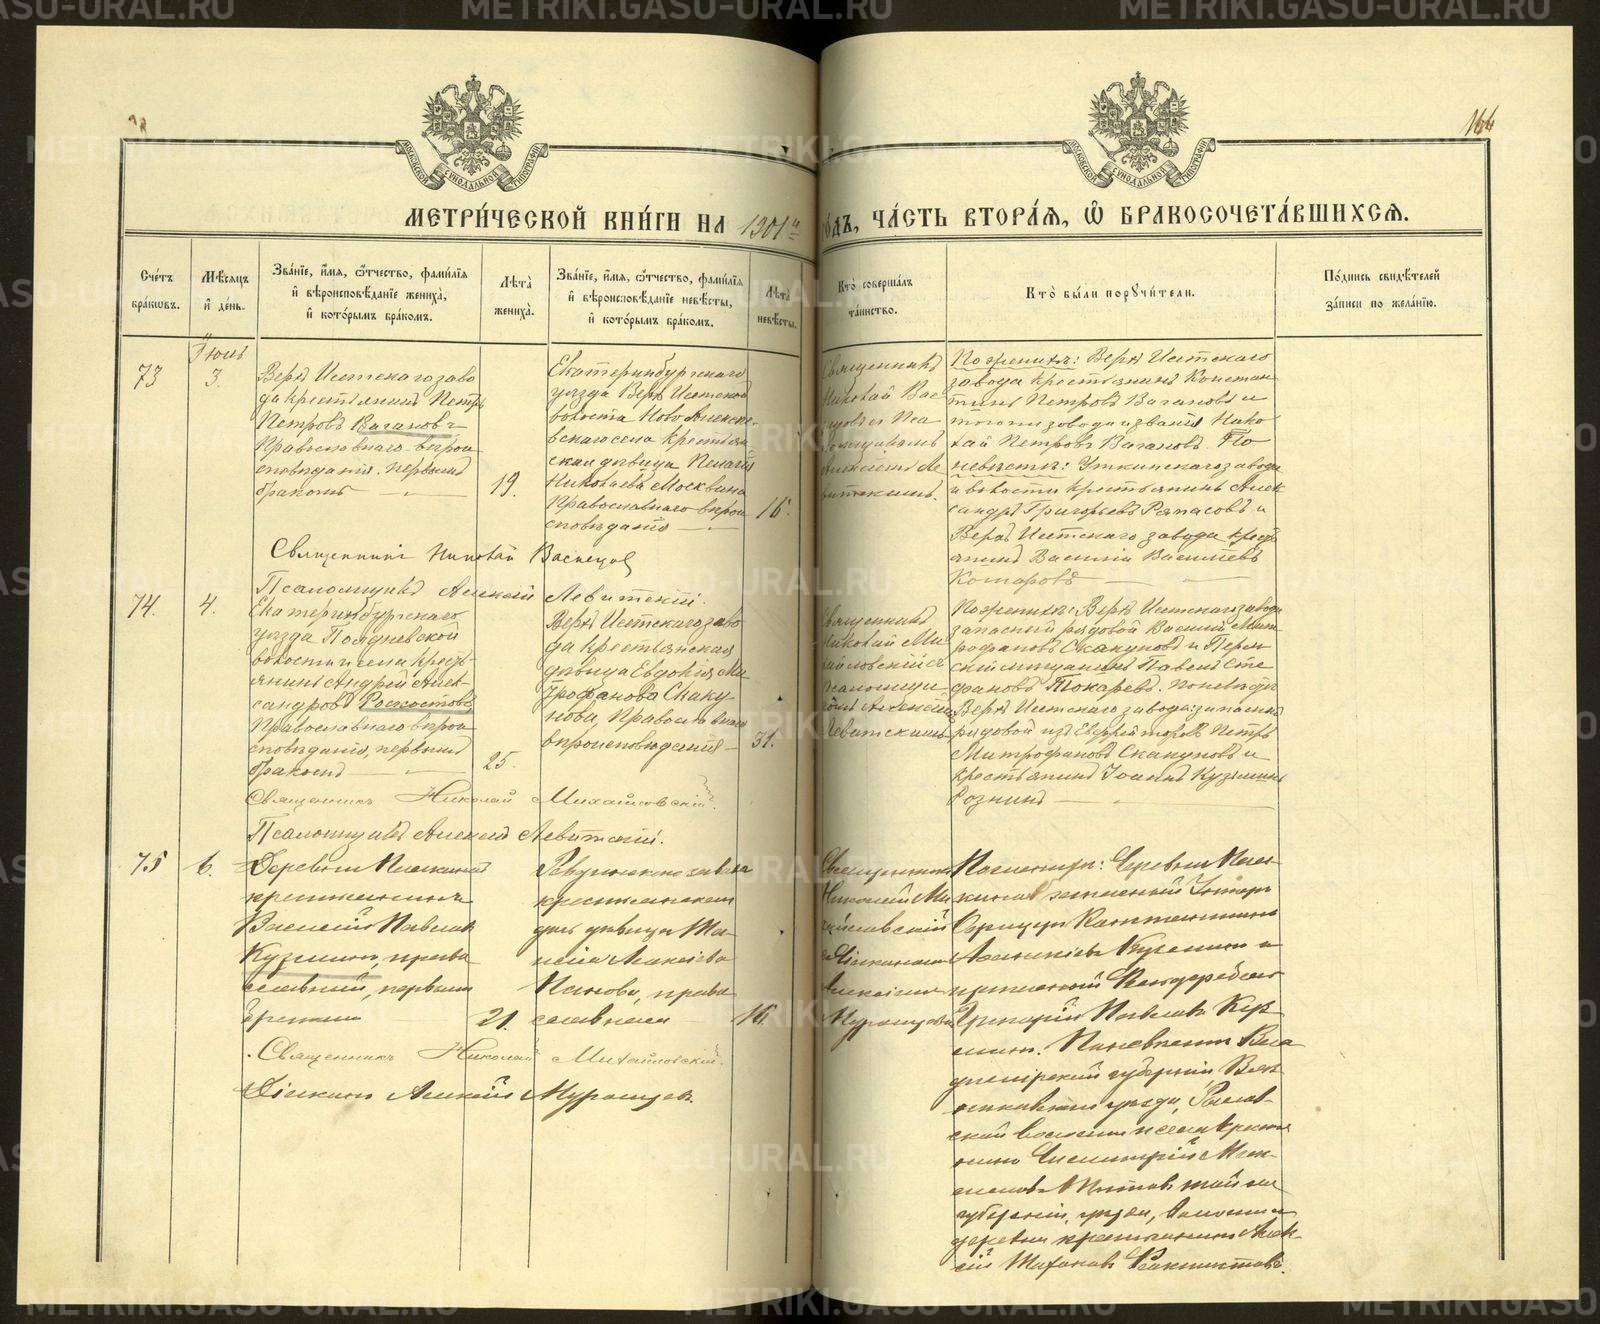 METRIKI.GASU-URAL.RU
166
МЕТРИ́ЧЕСКОЙ КНИ́ГИ НА 1901й
го́дъ, ЧА́СТЬ ВТОРА́Я, Ѽ БРАКОСОЧЕТА́ВШИХСЯ.
Сче́тъ
бра́ковъ.
Мѣ́сяцъ
и҆ де́нь.
Зва́нїе, и҆́мя, ѻ҆́тчество, фами́лїя
и҆ вѣроисповѣ́данїе жениха̀,
и҆ кото́рымъ бра́комъ.
Лѣта̀
жениха̀.
Зва́нїе, и҆́мя, ѻ҆́тчество, фами́лїя
и҆ вѣроисповѣ́данїе невѣ́сты,
и҆ кото́рымъ бра́комъ.
Лѣта̀
невѣ́сты.
Кто̀ соверша́лъ
та́инство.
Кто̀ бы́ли порꙋчи́тели.
По́дпись свидѣ́телей
за́писи по жела́нїю.
73
Іюнь
3.
Верхъ Исетскаго заво
да крестьянинъ Петръ
Петровъ Вагановъ
Православнаго вѣрои
сповѣданія. первымъ
бракомъ
19.
Екатеринбургскаго
уѣзда Верхъ Исетской
волости Ново Алексѣе-
вскаго села крестья
ская дѣвица Пелагія
Николаева Москвина
Православнаго вѣрои
сповѣданія
16.
Священникъ
Николай Вас
нецовъ съ Пса
ломщикомъ
Алексѣемъ Ле
витскимъ.
По женихѣ: Верхъ Исетскаго
завода крестьянинъ Констан
тинъ Петровъ Вагановъ и
того же завода и званія Нико
лай Петровъ Вагановъ. По
невѣстѣ: Уткинскаго завода
и волости крестьянинъ Алек
сандръ Григорьевъ
Верхъ Исетскаго завода крест
янинъ Василій Васильевъ
Комаровъ
Священникъ Николай Васнецов
Псаломщикъ Алексѣй Левитскій.
74.
4.
Екатеринбургскаго
уѣзда Полдневской
волости и села кресть
янинъ Андрей Алек-
сандровъ
Православнаго вѣрои
сповѣданія, первымъ
бракомъ
25.
Верхъ Исетскаго заво
да крестьянская
дѣвица Евдокія Ми
трофанова Скаку
нова, Православнаго
вѣроисповѣданія
31.
Священникъ
Николай Ми
хайловскій съ
Псаломщи-
комъ Алексѣемъ
Левитскимъ
По женихѣ: Верхъ Исетскаго завода
запасный рядовой Василій Мит
рофановъ Скакуновъ и Перм
скій мѣщанинъ Павелъ Сте
фановъ Токаревъ. по невѣстѣ
Верхъ Исетскаго завода: запасный
рядовой изъ Ефрейторовъ Петръ
Митрофановъ Скакуновъ и
крестьянинъ Іоаннъ Кузьминъ
Рознинъ
Священникъ Николай Михайловскій.
Псаломщикъ Алексѣй Левитскій.
75
6.
Деревни
крестьянинъ
Василій Павловъ
Кузьминъ, право
славный, первымъ
бракомъ
21.
Ревдинскаго завода
крестьянская
дочь дѣвица
Алексѣева
Панова, право
славная
16.
Священникъ
Николай Ми
хайловскій
съ Діакономъ
Алексѣемъ
По женихѣ: Деревни
запасный Унтеръ
Офицеръ Константинъ
Кузьминъ и
Григорій Павловъ Кузь
минъ. По невѣстѣ Вла
димірской губерніи Вяз
никовскаго уѣзда,
ской волости и села крестья
нинъ Димитрій
той же
губерніи, уѣзда, волости и
деревни крестьянинъ Алек
сѣй
Священникъ Николай Михайловскій.
Діаконъ Алексѣй